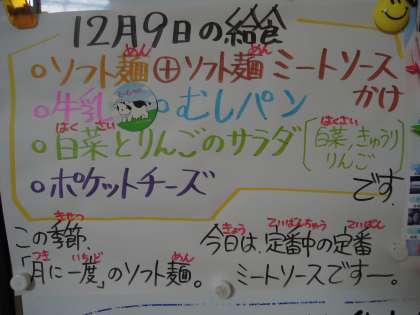 12月9日の給食
ソフト麺⊕ソフト麺ミートソースかけ
牛乳 むしパン
白菜とりんごのサラダ〔白菜,きゅうり りんご〕
ポケットチーズです。
この季節、「月に一度」のソフト麺。
今日は、定番中の定番ミートソースですー。